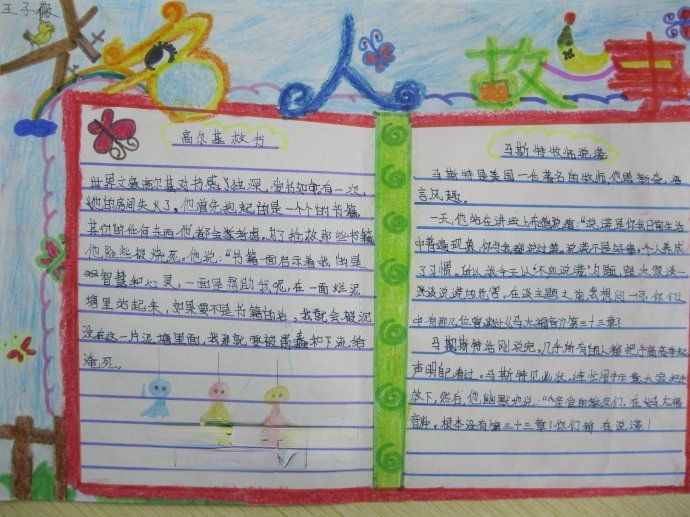 王子薇
名人故事
高尔基救书
世界文豪高尔基对书感情独深，爱书如命有一次，
他的房间失火了。他首先抱起的是一个个的书籍，
其他的任何东西他都会考虑。为了抢救那些书籍
他险些被烧死。他说："书籍一面启示着我的是
智慧和心灵，一面是帮助我呢，在一面烂泥
塘里站起来，如果要不是书籍的话，我就会被沉
没在这一片泥塘里面，我那就要被愚蠢和下流给
淹死。
马斯特牧师说谎
马斯特是美国一名著名的牧师，他思新奇，语
言风趣。
一天，他站在讲坛上布道说道："说谎是你我日常生活
中普遍现象，你与我都说过谎。说谎不是好事，个人养成
了习惯。所以我今天以"不应说谎"为题，跟大家谈一
谈谈说谎的危害。在谈主题之前我想问一句，你们
中有那几位曾读过《马太福音》第三十三章？
马斯特话刚说完，几乎所有的人都把手高高举起
声明配看过。马斯特见此状，连忙用手示意大家把手
放下，然后，他幽默地说："亲爱的教友们，在《马太福
音》中，根本没有第三十三章！你们都在说谎！